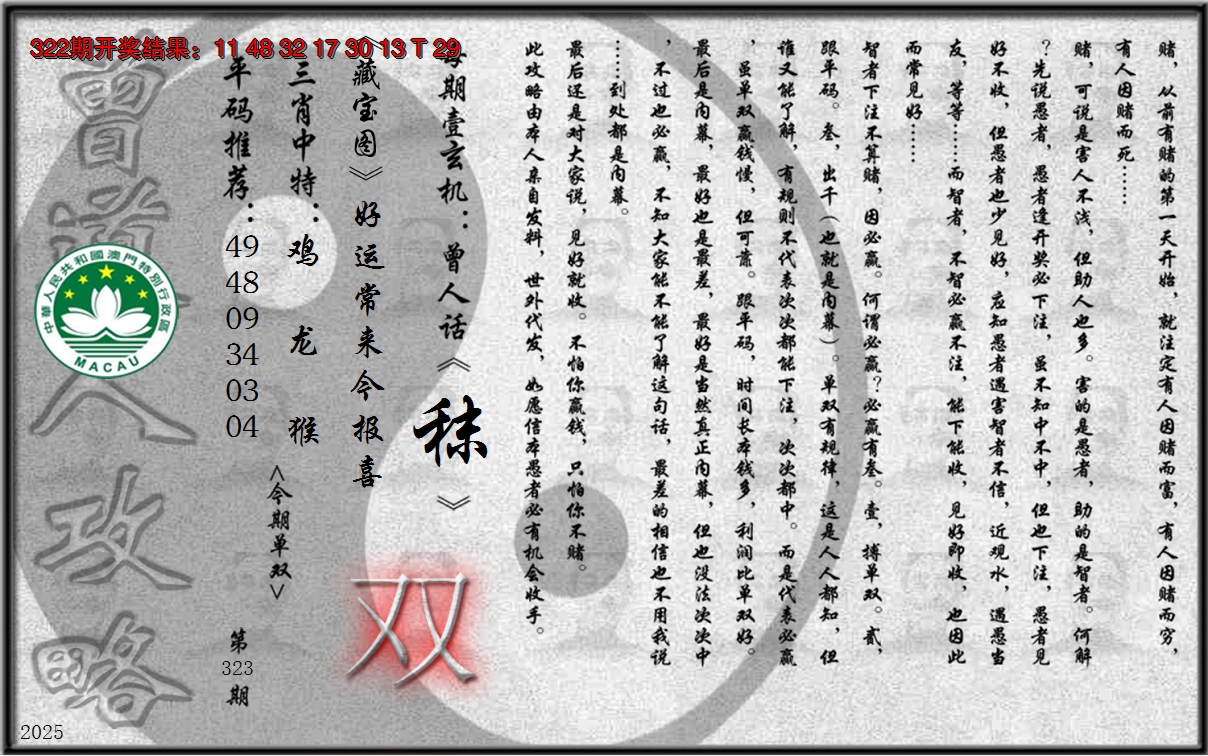 322期开奖结果：11 48 32 17 30 13 T 29
赌，从前有赌的第一天开始，就注定有人因赌而富，有人因赌而穷，
有人因赌而死……
赌，可说是害人不浅，但助人也多。害的是愚者，助的是智者。何解
？先说愚者，愚者逢开奖必下注，虽不知中不中，但也下注，愚者见
好不收，但愚者也少见好，应知愚者遇害智者不信，近观水，遇愚当
友，等等……而智者，不智必赢不注，能下能收，见好即收，也因此
而常见好……
智者下注不算赌，因必赢。何谓必赢？必赢有叁。壹，搏单双。贰，
跟平码。叁，出千（也就是内幕）。单双有规律，这是人人都知，但
谁又能了解，有规则不代表次次都能下注，次次都中。而是代表必赢
，虽单双赢钱慢，但可靠。跟平码，时间长本钱多，利润比单双好。
最后是内幕，最好也是最差，最好是当然真正内幕，但也没法次次中
，不过也必赢，不知大家能不能了解这句话，最差的相信也不用我说
……到处都是内幕。
最后还是对大家说，见好就收。不怕你赢钱，只怕你不赌。
此攻略由本人亲自发料，世外代发，如愿信本愚者必有机会收手。
每期壹玄机：曾人话《秣》
《藏宝图》好运常来今报喜
双
三肖中特：鸡 龙 猴
<今期单双>
平码推荐：49 48 09 34 03 04
第323期
曾道人攻略
中華人民共和國澳門特別行政區
MACAU
2025